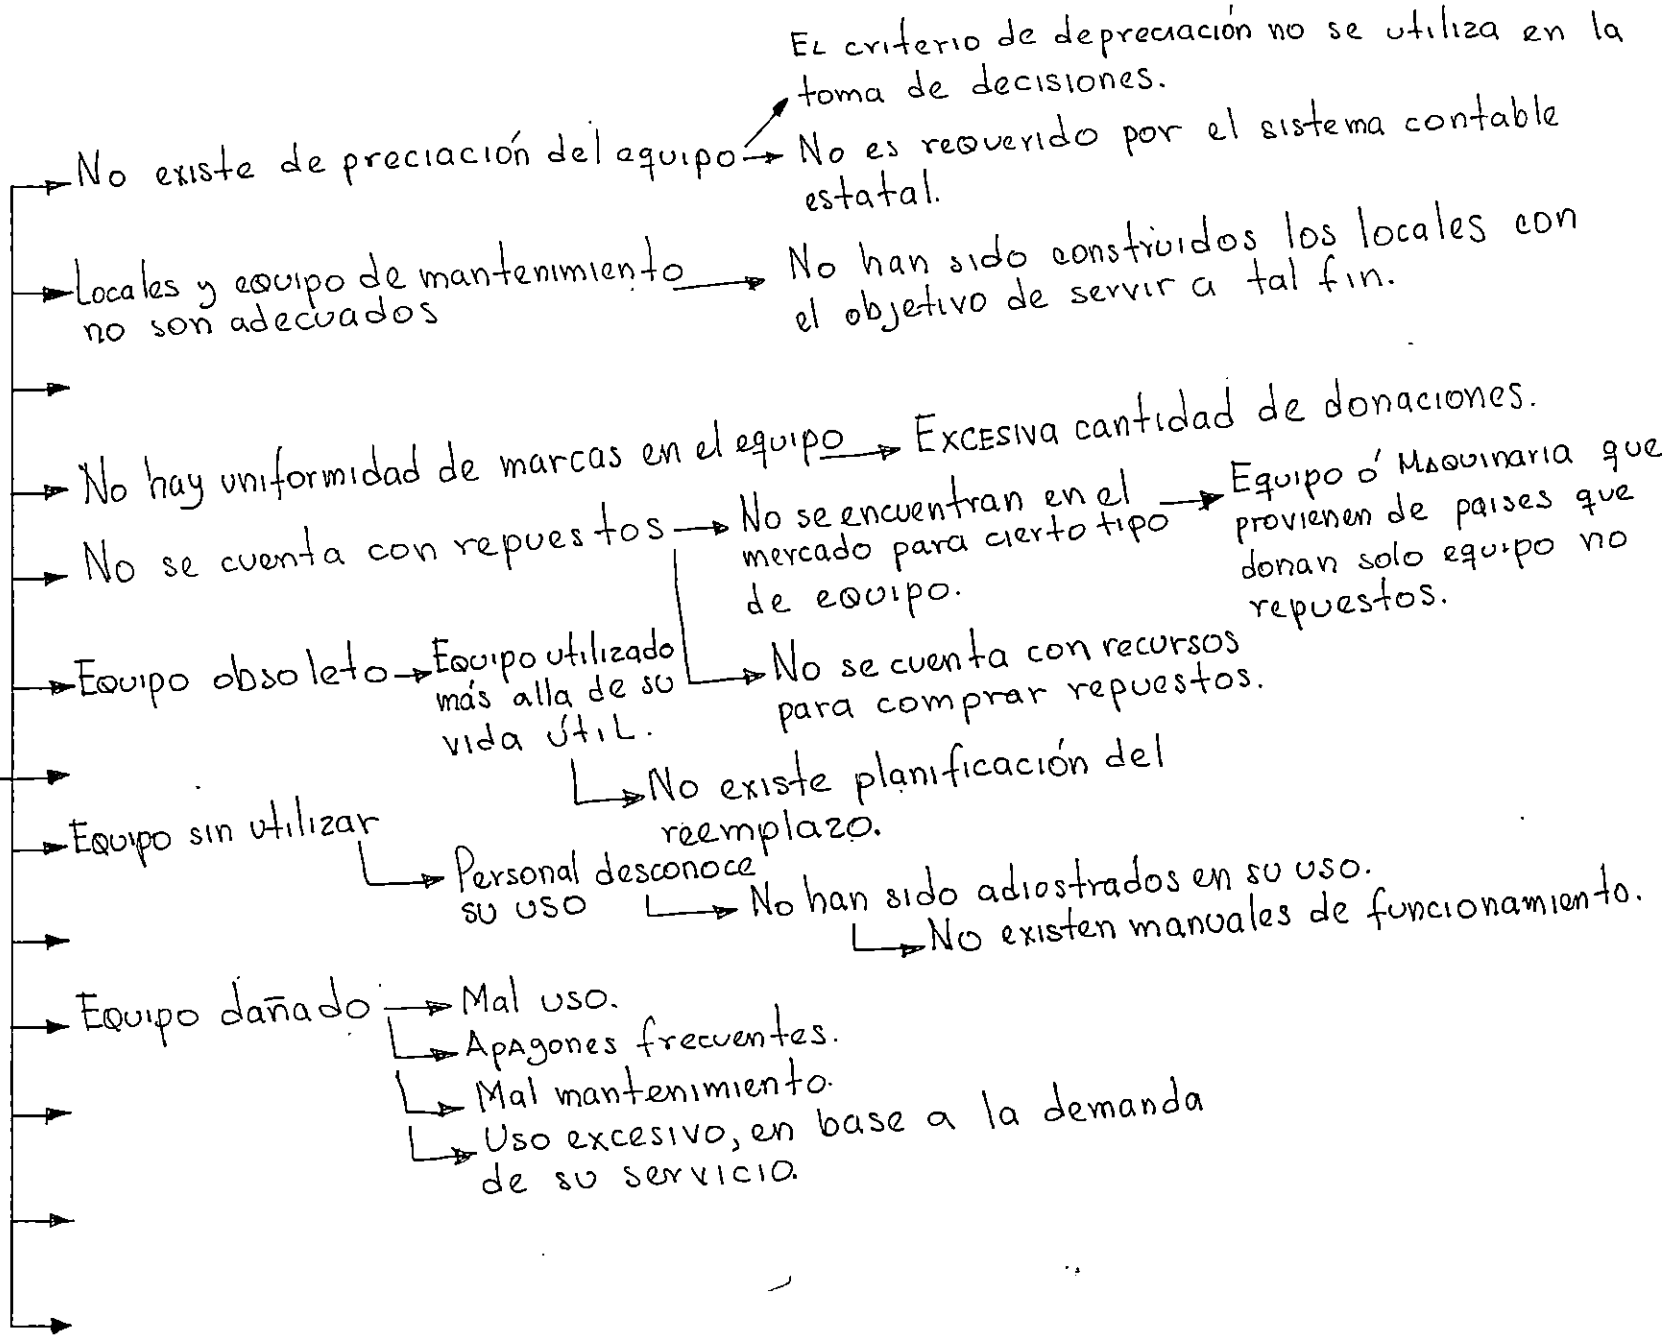 EL criterio de depreciación no se utiliza en la
toma de decisiones.
No existe de preciación del equipo
No es requerido por el sistema contable
estatal.
Locales y equipo de mantenimiento
no son adecuados
No han sido construidos los locales con
el objetivo de servir a tal fin.
No hay uniformidad de marcas en el equipo
Excesiva cantidad de donaciones.
No se cuenta con repuestos
No se encuentran en el
mercado para cierto tipo
de equipo.
Equipo ó Maquinaria que
provienen de paises que
donan solo equipo no
repuestos.
No se cuenta con recursos
para comprar repuestos.
Equipo obsoleto
Equipo utilizado
más alla de su
vida útil.
No existe planificación del
reemplazo.
Equipo sin utilizar
Personal desconoce
su uso
No han sido adiostrados en su uso.
No existen manuales de funcionamiento.
Equipo dañado
Mal uso.
Apagones frecuentes.
Mal mantenimiento.
Uso excesivo, en base a la demanda
de su servicio.